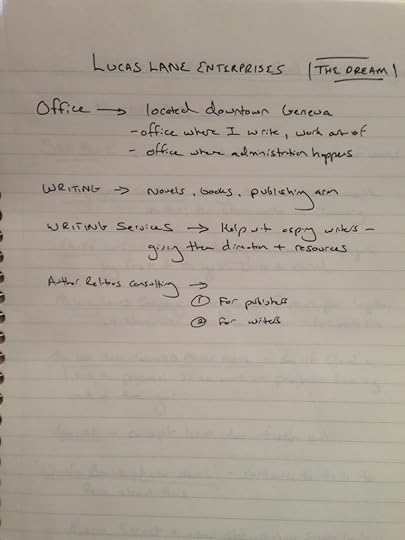 LUCAS LANE ENTERPRISES | THE DREAM |
Office → located downtown Geneva
- office where I write, work out of
- office where administration happens
WRITING → Novels, books, publishing arm
WRITING SERVICES → Help with aspiring writers -
giving them direction + resources
Author Relations Consulting →
① For publishers
② For writers